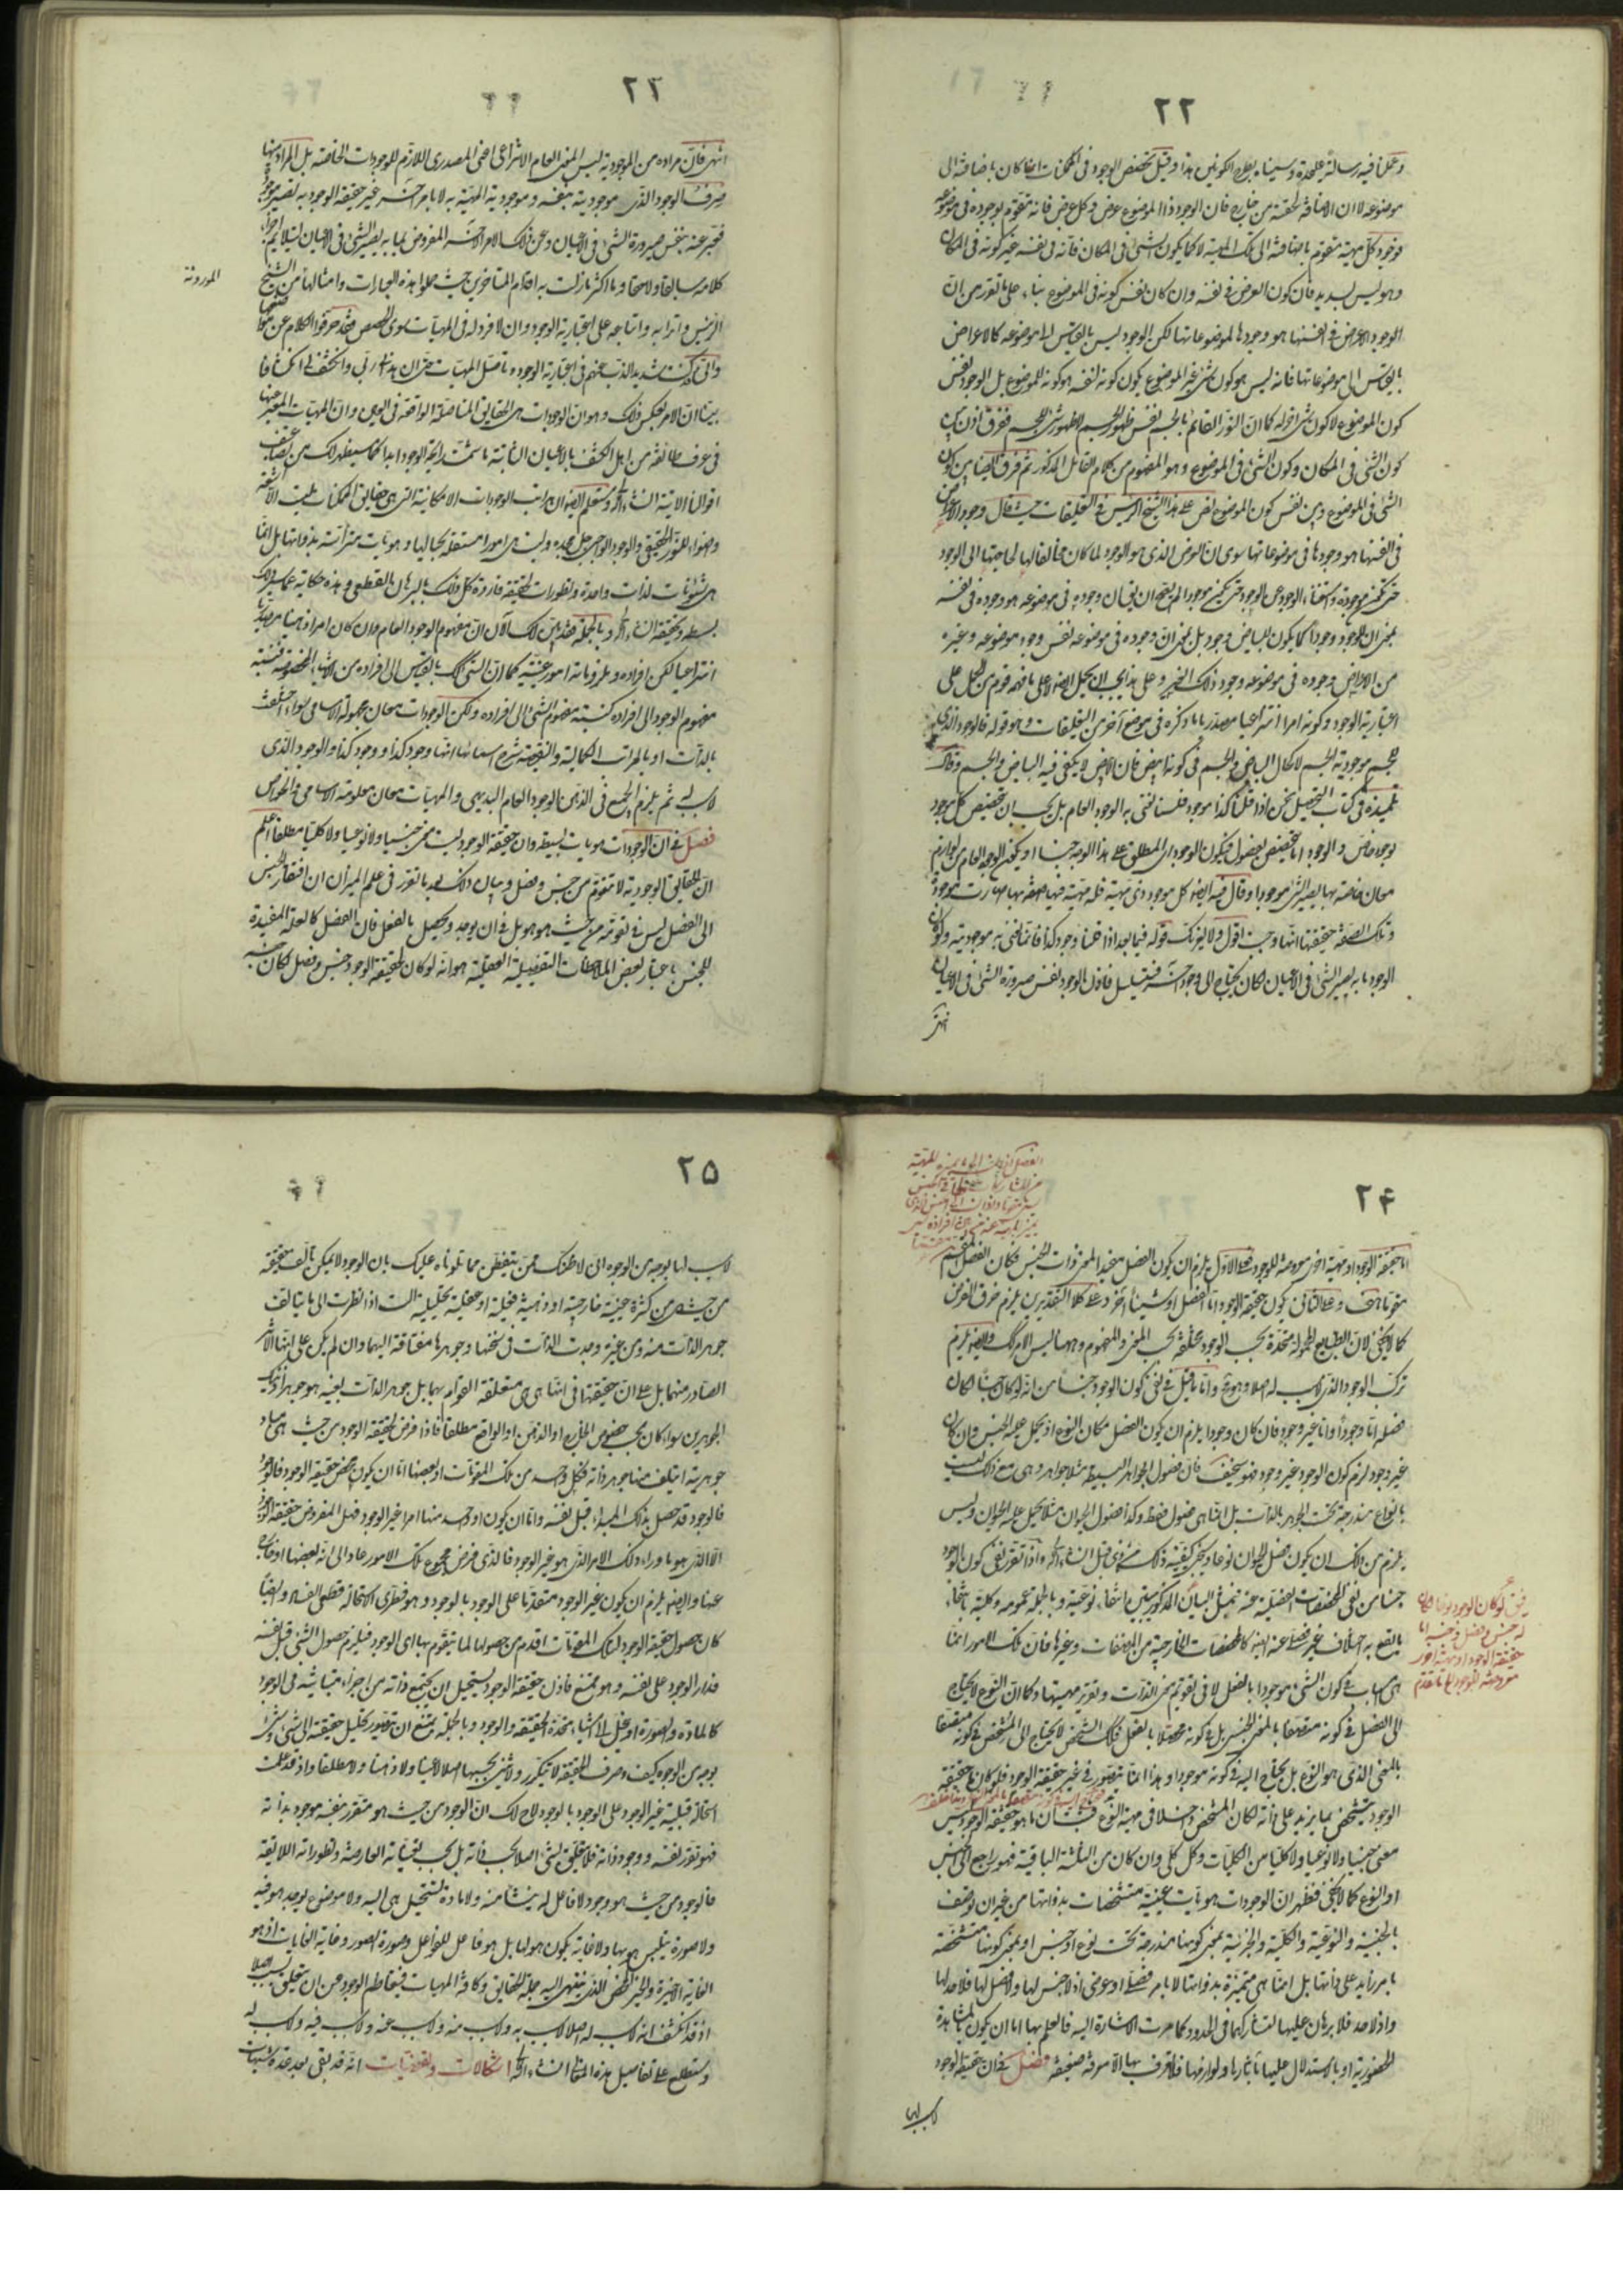 ۲۲
وعملنا فيه رسالة عليحدة وسميناه بطرح الكونين هذا وقيل تخصص الوجود فى الممكنات انما كان باضافته الى
موضوعه لا ان الاضافة لحقته من خارج فان الوجود ذا الموضوع عرض وكل عرض فانه متقوم بوجوده فى موضوعه
فوجود كل مهية متقوم باضافته الى تلك المهية لا كما يكون الشئ فى المكان فانه فى نفسه غير كونه فى المكان
وهو ليس بسديد فان كون العرض فى نفسه وان كان نفس كونه فى الموضوع بناء على ما تقرر من ان
الوجود الاعراض فى انفسها هو وجودها لموضوعاتها لكن الوجود ليس بالقياس الى موضوعه كالاعراض
بالقياس الى موضوعاتها فانه ليس هو كون شئ غير الموضوع يكون كونه لنفسه هو كونه للموضوع بل الوجود نفس
كون الموضوع لا كون شئ اخر له كما ان النور القائم بالجسم نفس ظهور الجسم لا ظهور شئ للجسم ففرق اذن بين
كون الشئ فى المكان وكون الشئ فى الموضوع وهو المفهوم من كلام القائل المذكور ثم فرق ايضا بين كون
الشئ فى الموضوع وبين نفس كون الموضوع نص على هذا الشيخ الرئيس فى التعليقات حيث قال وجود الاعراض
فى انفسها هو وجودها فى موضوعاتها سوى ان العرض الذى هو الوجود لما كان مخالفا لها لحاجتها الى الوجود
حتى تكون موجودة واستغناء الوجود عن الوجود حتى يكون موجودا لم يصح ان يقال ان وجوده فى موضوعه هو وجوده فى نفسه
بمعنى ان للوجود وجودا كما يكون للبياض وجود بل بمعنى ان وجوده فى موضوعه نفس وجود موضوعه وغيره
من الاعراض وجوده فى موضوعه وجود ذلك الغير وعلى هذا يجب ان يحمل ايضا لا على ما فهمه قوم من الحمل على
اعتبارية الوجود وكونه امرا انتزاعيا مصدريا ما ذكره فى موضع آخر من التعليقات وهو قوله فالوجود الذى
للجسم هو موجودية الجسم لا كحال البياض والجسم فى كونه ابيض فان الابيض لا يكفى فيه البياض والجسم وقال
تلميذه فى كتاب التحصيل نحن اذا قلنا كذا موجود فلسنا نعنى به الوجود العام بل يجب ان تخصص كل موجود
بوجود خاص والوجود اما يتخصص بفصول فيكون الوجود اى المطلق على هذا الوجه جنسا او يكون الوجود العام من لوازم
معان خاصة بها يصير الشئ موجودا وقال فيه ايضا كل موجود ذى مهية فله مهية فيها صفة بها صارت موجودة
وتلك الصفة حقيقتها انها وجبت اقول ولا يغرنك قوله فيما بعد اذا قلنا وجود كذا فانما نعنى به موجوديته ولو كان
الوجود ما به يصير الشئ فى الاعيان لكان يحتاج الى وجود آخر فيتسلسل فاذن الوجود نفس صيرورة الشئ فى الاعيان
انتهى
۲۳
انتهى فان مراده من الموجودية ليس المعنى العام الانتزاعى اعنى المصدرى اللازم للوجودات الخاصة بل المراد منها
صرف الوجود الذى موجوديته بنفسه وموجودية المهية به لا بامر آخر غير حقيقة الوجود به تصير موجودة
فعبر عنه بنفس صيرورة الشئ فى الاعيان وعن ذلك الامر الآخر المفروض بما به يصير الشئ فى الاعيان ليتلائم اجزاء
كلامه سابقا ولاحقا وما اكثر ما زلت به اقدام المتاخرين حيث حملوا هذه العبارات وامثالها من الشيخ
الموروثة
الرئيس واترابه واتباعه على اعتبارية الوجود وان لا فرد له فى المهيات سوى الحصص فقد حرفوا الكلام عن مواضعه
وانى قد كنت شديد الذب عنهم فى اعتبارية الوجود وتاصل المهيات حتى ان هدانى ربى وانكشف لى انكشافا
بينا ان الامر بعكس ذلك وهو ان الوجودات هى الحقايق المتاصلة الواقعة فى العين وان المهيات المعبر عنها
فى عرف طائفة من اهل الكشف بالاعيان الثابتة ما شمت رائحة الوجود ابدا كما سيظهر لك من تضاعيف
اقوالنا الاتية ان شاء الله وستعلم ايضا ان مراتب الوجودات الامكانية التى هى حقايق الممكنات ليست الا اشعة
واضواء للنور الحقيقى والوجود الواجبى جل مجده وليست هى امورا مستقلة بحيالها وهويات مترأسة بذواتها بل انما
هى شئونات لذات واحدة وتطورات لحقيقة فاردة كل ذلك بالبرهان القطعى وهذه حكاية عما سيرد لك
بسطه وتحقيقه ان شاء الله وبالجملة فقد تبين لك الان ان مفهوم الوجود العام وان كان امرا ذهنيا مصدريا
انتزاعيا لكن افراده وملزوماته امور عينية كما ان الشئ كك بالقياس الى افراده من الاشياء المخصوصة فنسبة
مفهوم الوجود الى افراده كنسبة مفهوم الشئ الى افراده ولكن الوجودات معان مجهولة الاسامى سواء اختلفت
بالذات او بالمراتب الكمالية والنقصية شرح اسمائها انها وجود كذا ووجود كذا والوجود الذى
لا سبب له ثم يلزم الجميع فى الذهن الوجود العام البديهى والمهيات معان معلومة الاسامى والخواص
فصل فى ان الوجودات هويات بسيطة وان حقيقة الوجود ليست معنى جنسيا ولا نوعيا ولا كليا مطلقا اعلم
ان الحقايق الوجودية لا تتقوم من جنس وفصل وبيان ذلك بعد ما تقرر فى علم الميزان ان افتقار الجنس
الى الفصل ليس فى تقومه من حيث هو هو بل فى ان يوجد ويحصل بالفعل فان الفصل كالعلة المفيدة
للجنس باعتبار بعض الملاحظات التفصيلية العقلية هو انه لو كان لحقيقة الوجود جنس وفصل لكان جنسه
۲۴
اما حقيقة الوجود او مهية اخرى معروضة للوجود فعلى الاول يلزم ان يكون الفصل مفيدا لمعنى ذات الجنس فكان الفصل المقسم
مقوما هف وعلى الثانى يكون حقيقة الوجود اما الفصل او شيئا آخر وعلى كلا التقديرين يلزم خرق الفرض
كما لا يخفى لان الطبايع المحمولة متحدة بحسب الوجود مختلفة بحسب المعنى والمفهوم وههنا ليس الامر كك وايضا يلزم
تركب الوجود الذى لا سبب له اصلا وهو مح واما ما قيل فى نفى كون الوجود جنسا من انه لو كان جنسا لكان
فصله اما وجودا واما غير وجود فان كان وجودا يلزم ان يكون الفصل مكان النوع اذ يحمل عليه الجنس وان كان
غير وجود لزم كون الوجود غير وجود فهو سخيف فان فصول الجواهر البسيطة مثلا جواهر وهى مع ذلك ليست
بانواع مندرجة تحت الجوهر بالذات بل انما هى فصول فقط وكذا فصول الحيوان مثلا يحمل عليها الحيوان وليس
يلزم من ذلك ان يكون فصل الحيوان نوعا وسيجئ كيفية ذلك من ذى قبل ان شاء الله واذا تقرر نفى كون الوجود
جنسا من نفى المخصصات الفصلية عنه فبمثل البيان المذكور يتبين انتفاء نوعيته وبالجملة عمومه وكليته بانتفاء
ما يقع به اختلاف غير فصلى عنه ايضا كالمخصصات الخارجية من المصنفات وغيرها فان تلك الامور انما
هى اسباب فى كون الشئ موجودا بالفعل لا فى تقويم معنى الذات وتقرير مهيتها وكما ان النوع لا يحتاج
الى الفصل فى كونه متصفا بالمعنى الجنسى بل فى كونه محصلا بالفعل فكذلك الشخص لا يحتاج الى المشخص فى كونه متصفا
بالمعنى الذى هو النوع بل يحتاج اليه فى كونه موجودا وهذا انما يتصور فى غير حقيقة الوجود فلو كان حقيقة
الوجود يتشخص بما يزيد على ذاته لكان المشخص داخلا فى مهية النوع فثبت ان ما هو حقيقة الوجود ليس
معنى جنسيا ولا نوعيا ولا كليا من الكليات وكل كلى وان كان من الثلثة الباقية فهو راجع الى الجنس
او النوع كما لا يخفى فظهر ان الوجودات هويات عينية متشخصات بذواتها من غير ان توصف
بالجنسية والنوعية والكلية والجزئية بمعنى كونها مندرجة تحت نوع او جنس او بمعنى كونها متشخصة
بامر زايد على ذاتها بل انما هى متميزة بذواتها لا بامر فصلى او عرضى اذ لا جنس لها ولا فصل لها فلا حد لها
واذ لا حد فلا برهان عليها لتشاركهما فى الحدود كما مرت الاشارة اليه فالعلم بها اما ان يكون بالمشاهدة
الحضورية او بالاستدلال عليها باثارها ولوازمها فلا تعرف بها الا معرفة ضعيفة فصل فى ان حقيقة الوجود
لا سبب لها
لو كان الوجود نوعا لكان
له جنس وفصل وجنسه اما
حقيقة الوجود او مهية اخرى
معروضة للوجود على ما تقدم
۲۵
لا سبب لها بوجه من الوجوه انى لاظنك ممن يتفطن مما تلوناه عليك بان الوجود لا يمكن تالف حقيقته
من حيث هى من كثرة عينية خارجية او ذهنية فعلية او عقلية تحليلية الست اذا نظرت الى ما يتالف
جوهر الذات منه ومن غيره وجدت الذات فى سنخها وجوهرها مفتاقة اليهما وان لم يكن على انها الاثر
الصادر منهما بل على ان حقيقتها فى انها هى هى متعلقة القوام بهما بل جوهر الذات بعينه هو جوهرا ذينك
الجوهرين سواء كان بحسب خصوص الخارج او الذهن او الواقع مطلقا فاذا فرض لحقيقة الوجود من حيث هى مباد
جوهرية ايتلف منها جوهر ذاته فكل واحد من تلك المقومات او بعضها اما ان يكون محض حقيقة الوجود فالوجود
فالوجود قد حصل بذلك المبدء قبل نفسه واما ان يكون او واحد منها امرا غير الوجود فهل المفروض حقيقة الوجود
الا الذى هو ما وراء ذلك الامر الذى هو غير الوجود فالذى فرض مجموع تلك الامور عاد الى انه بعضها او خارج
عنها وايضا يلزم ان يكون غير الوجود متقدما على الوجود بالوجود وهو فطرى الاستحالة قطعى الفساد وايضا
كان حصول حقيقة الوجود لتلك المقومات اقدم من حصولها لما يتقوم بها اى الوجود فيلزم حصول الشئ قبل نفسه
فدار الوجود على نفسه وهو ممتنع فاذن حقيقة الوجود يستحيل ان يجتمع ذاته من اجزاء متباينة فى الوجود
كالمادة والصورة او ينحل الى اشياء متحدة الحقيقة والوجود وبالجملة يمتنع ان يتصور تحليل حقيقته الى شئ وشئ
بوجه من الوجوه كيف وصرف الحقيقة لا يتكرر ولا يتثنى بحسبها اصلا لا عينا ولا ذهنا ولا مطلقا واذ قد علمت
استحالة قبلية غير الوجود على الوجود بالوجود لاح لك ان الوجود من حيث هو متقرر بنفسه موجود بذاته
فهو تقرر نفسه ووجود ذاته فلا يتعلق بشئ اصلا بحسب ذاته بل بحسب تعيناته العارضة وتطوراته اللاحقة
فالوجود من حيث هو وجود لا فاعل له ينشا منه ولا مادة يستحيل هى اليه ولا موضوع يوجد هو فيه
ولا صورة يتلبس هو بها ولا غاية يكون هو لها بل هو فاعل الفواعل وصورة الصور وغاية الغايات اذ هو
الغاية الاخيرة والخير المحض الذى ينتهى اليه جملة الحقايق وكافة المهيات فيتعاظم الوجود عن ان يتعلق بسبب اصلا
اذ قد انكشف انه لا سبب له اصلا لا سبب به ولا سبب منه ولا سبب عنه ولا سبب فيه ولا سبب له
وستطلع على تفاصيل هذه المعانى ان شاء الله اشكالات وتفصيات انه قد بقى بعد عدة شبهات